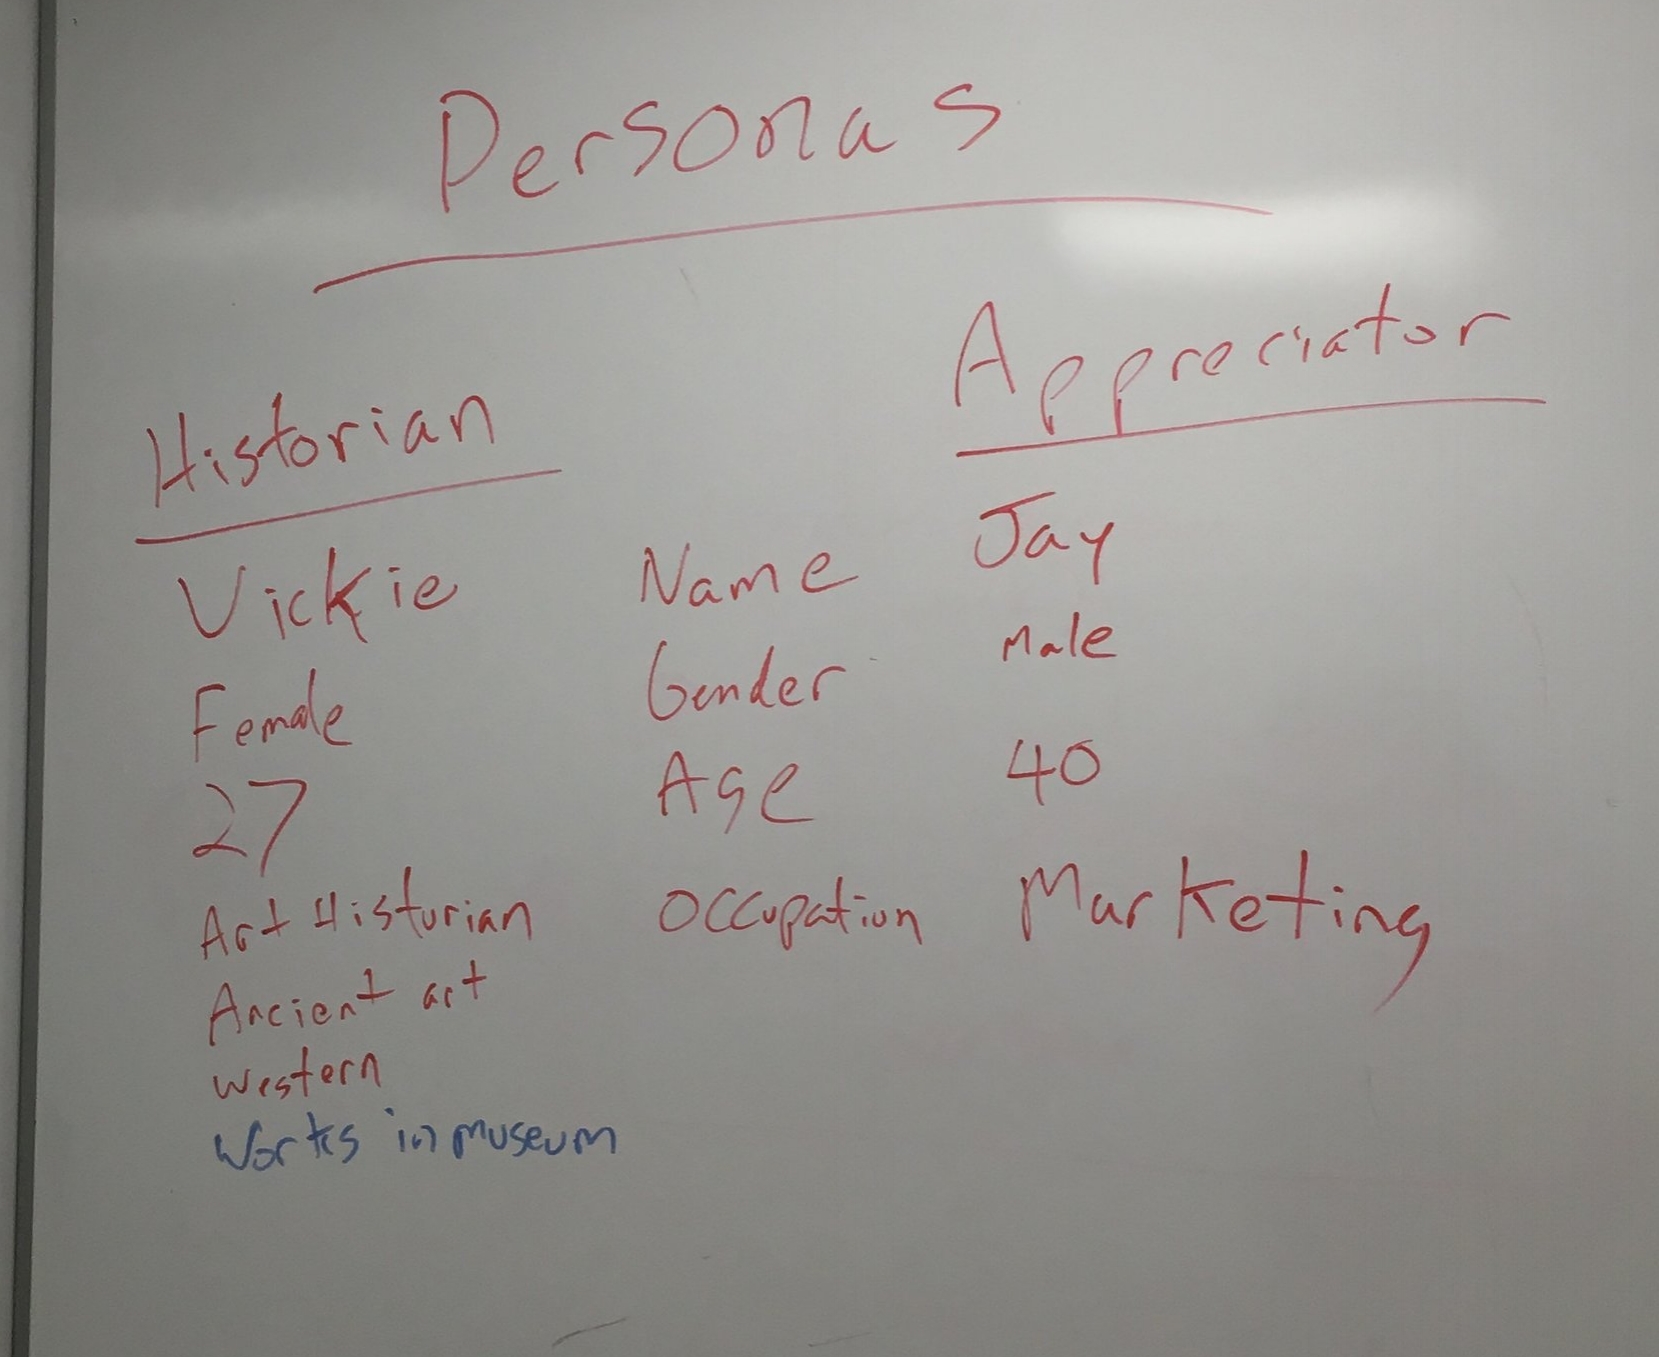 Personas
Historian Appreciator
Vickie Name Jay
Female Gender Male
27 Age 40
Art Historian Occupation Marketing
Ancient art
Western
Works in museum